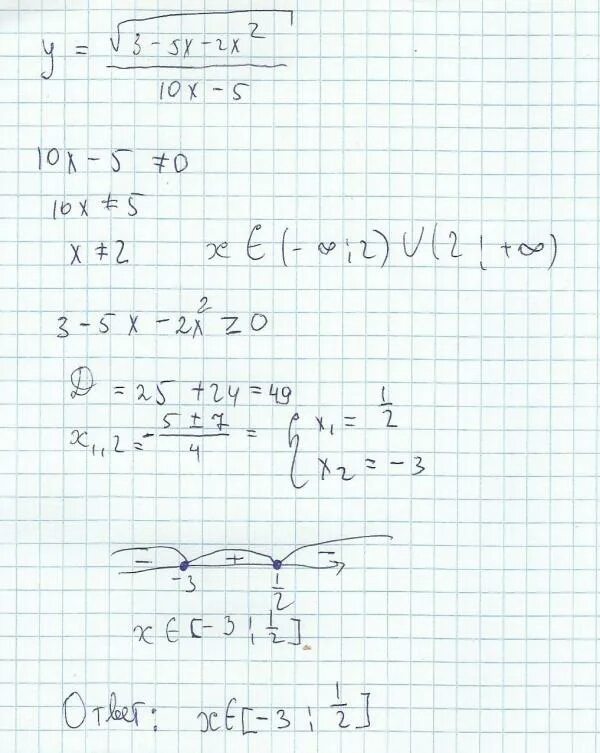 y = √(3 - 5x - 2x²) / (10x - 5)
10x - 5 ≠ 0
10x ≠ 5
x ≠ 2   x ∈ (-∞; 2) ∪ (2; +∞)
3 - 5x - 2x² ≥ 0
D = 25 + 24 = 49
x₁,₂ = -(5 ± 7)/4 = { x₁ = 1/2
x₂ = -3
- + -
-3 1/2
x ∈ [-3; 1/2]
Ответ: x ∈ [-3; 1/2]